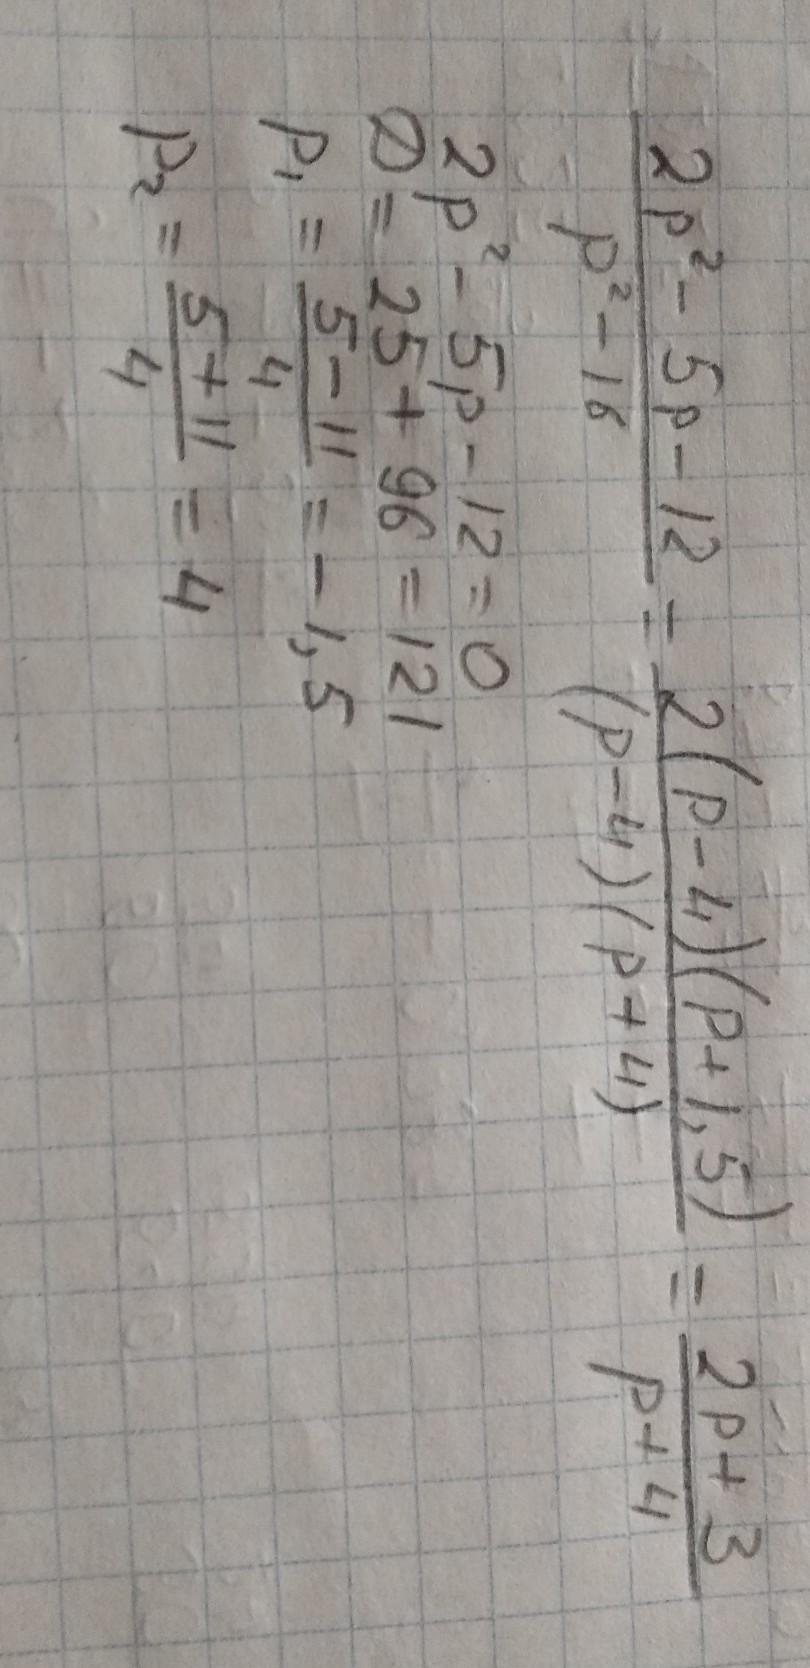 2p² - 5p - 12 / p² - 16 = 2(p - 4)(p + 1,5) / (p - 4)(p + 4) = 2p + 3 / p + 4
2p² - 5p - 12 = 0
D = 25 + 96 = 121
p₁ = 5 - 11 / 4 = - 1,5
p₂ = 5 + 11 / 4 = 4